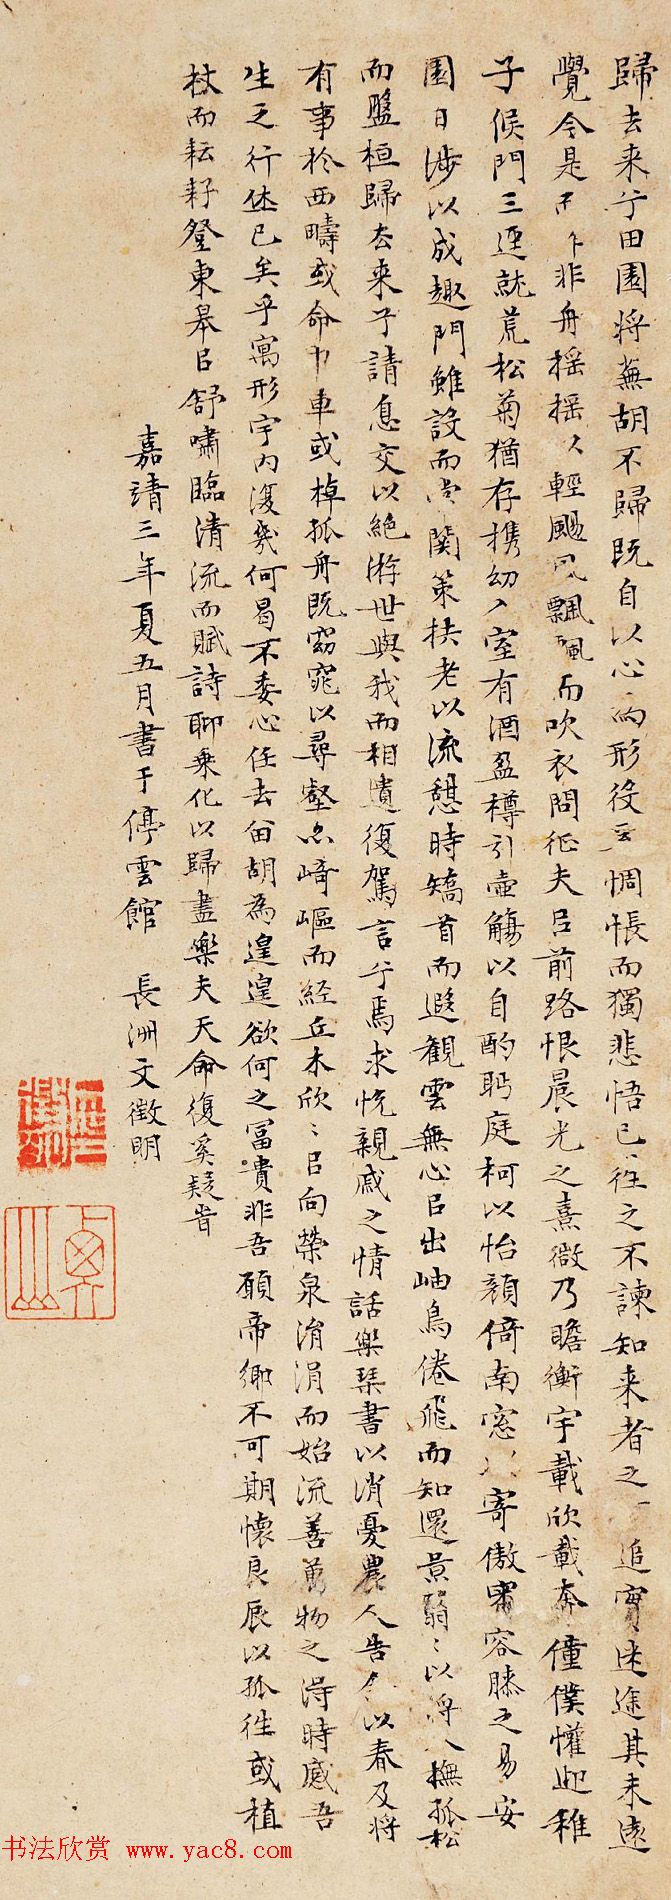 歸去来兮田園将蕪胡不歸既自以心為形役奚惆悵而獨悲悟已往之不諫知来者之可追實迷途其未遠
覺今是而昨非舟摇摇以輕颺風飄飄而吹衣問征夫以前路恨晨光之熹微乃瞻衡宇載欣載奔僮僕懽迎稚
子候門三逕就荒松菊猶存携幼入室有酒盈樽引壶觴以自酌眄庭柯以怡顔倚南窓以寄傲審容膝之易安
園日涉以成趣門雖設而常関策扶老以流憩時矯首而遐観雲無心以出岫鳥倦飛而知還景翳翳以将入撫孤松
而盤桓歸去来兮請息交以絶游世與我而相遺復駕言兮焉求悦親戚之情話樂琴書以消憂農人告余以春及将
有事於西疇或命巾車或棹孤舟既窈窕以尋壑亦崎嶇而経丘木欣〻以向榮泉涓涓而始流善萬物之得時感吾
生之行休已矣乎寓形宇内復幾何曷不委心任去留胡為遑遑欲何之冨貴非吾願帝鄉不可期懐良辰以孤往或植
杖而耘耔登東皋以舒嘯臨清流而賦詩聊乗化以歸盡樂夫天命復奚疑
嘉靖三年夏五月書于停雲館 長洲文徵明
书法欣赏 www.yac8.com